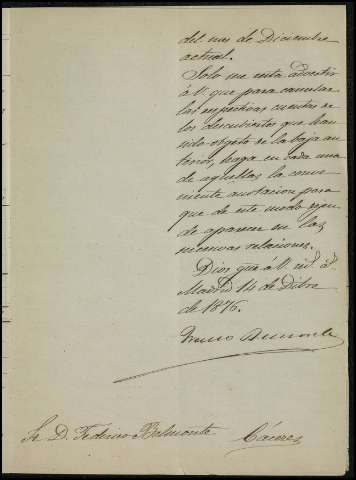 del mes de Diciembre
actual.
Solo me resta advertir
á V. que para cancelar
las respectivas cuentas de
los descubiertos que han
sido objeto de la baja an
terior, haga en cada una
de aquellas la conve
niente anotacion para
que de este modo
de aparecer en las
sucesivas relaciones.
Dios gue á V. ms. as.
Madrid 14 de Dbre
de 1876.
Sr. D. Federico Belmonte. Cáceres